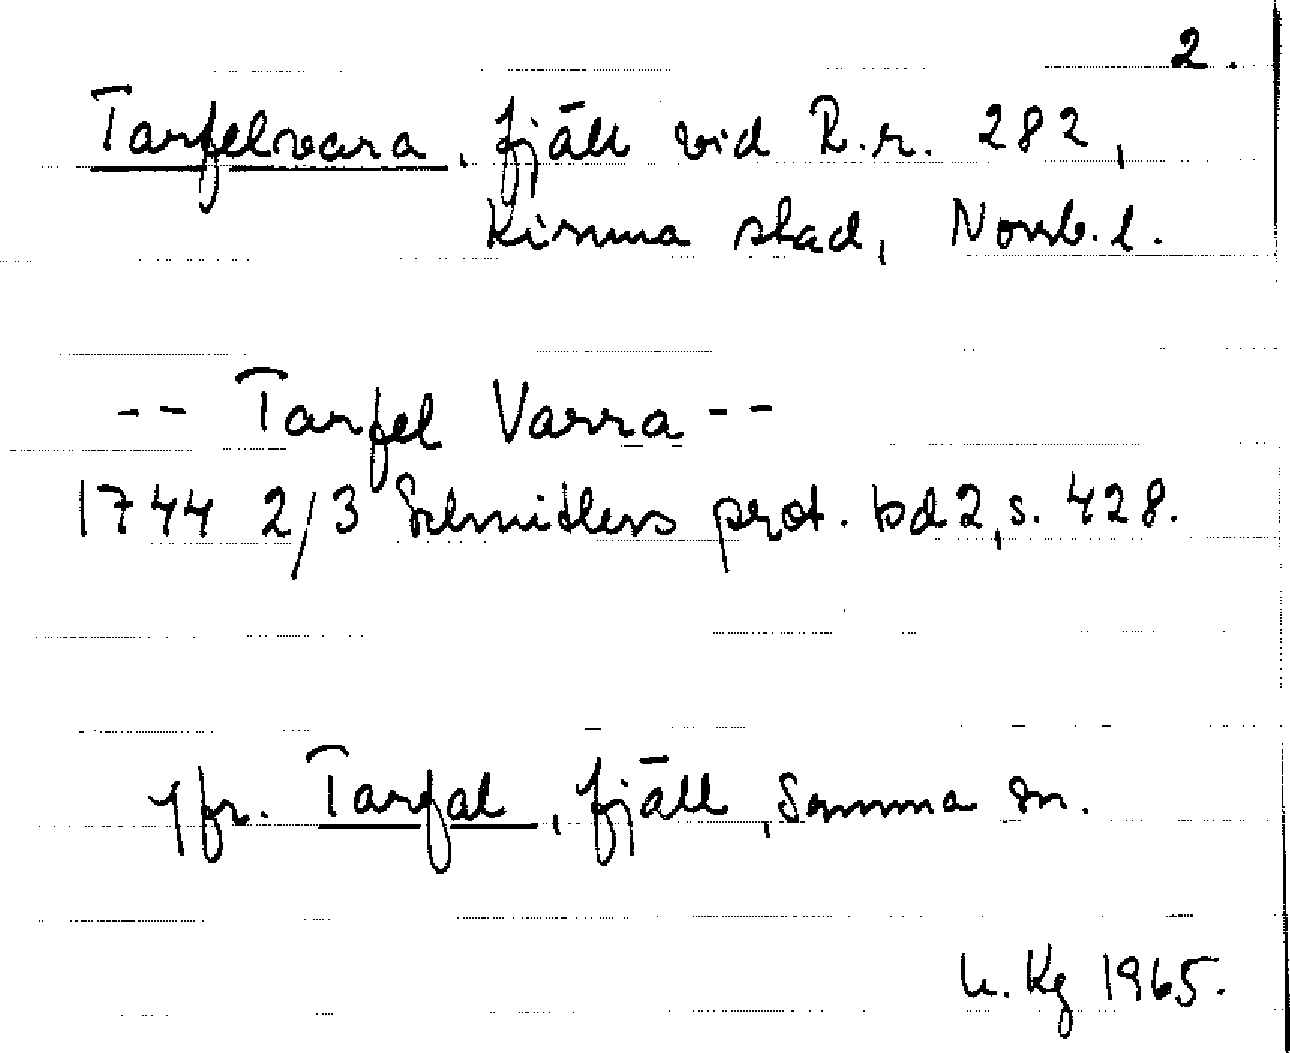 2.
Tarfelvara, fjäll vid R.r. 282,
Kiruna stad, Norrb.l.
-- Tarfel Varra --
1744 2/3 Schnitlers prot. bd2, s. 428.
Jfr. Tarfal, fjäll, samma sn.
U. Kg 1965.